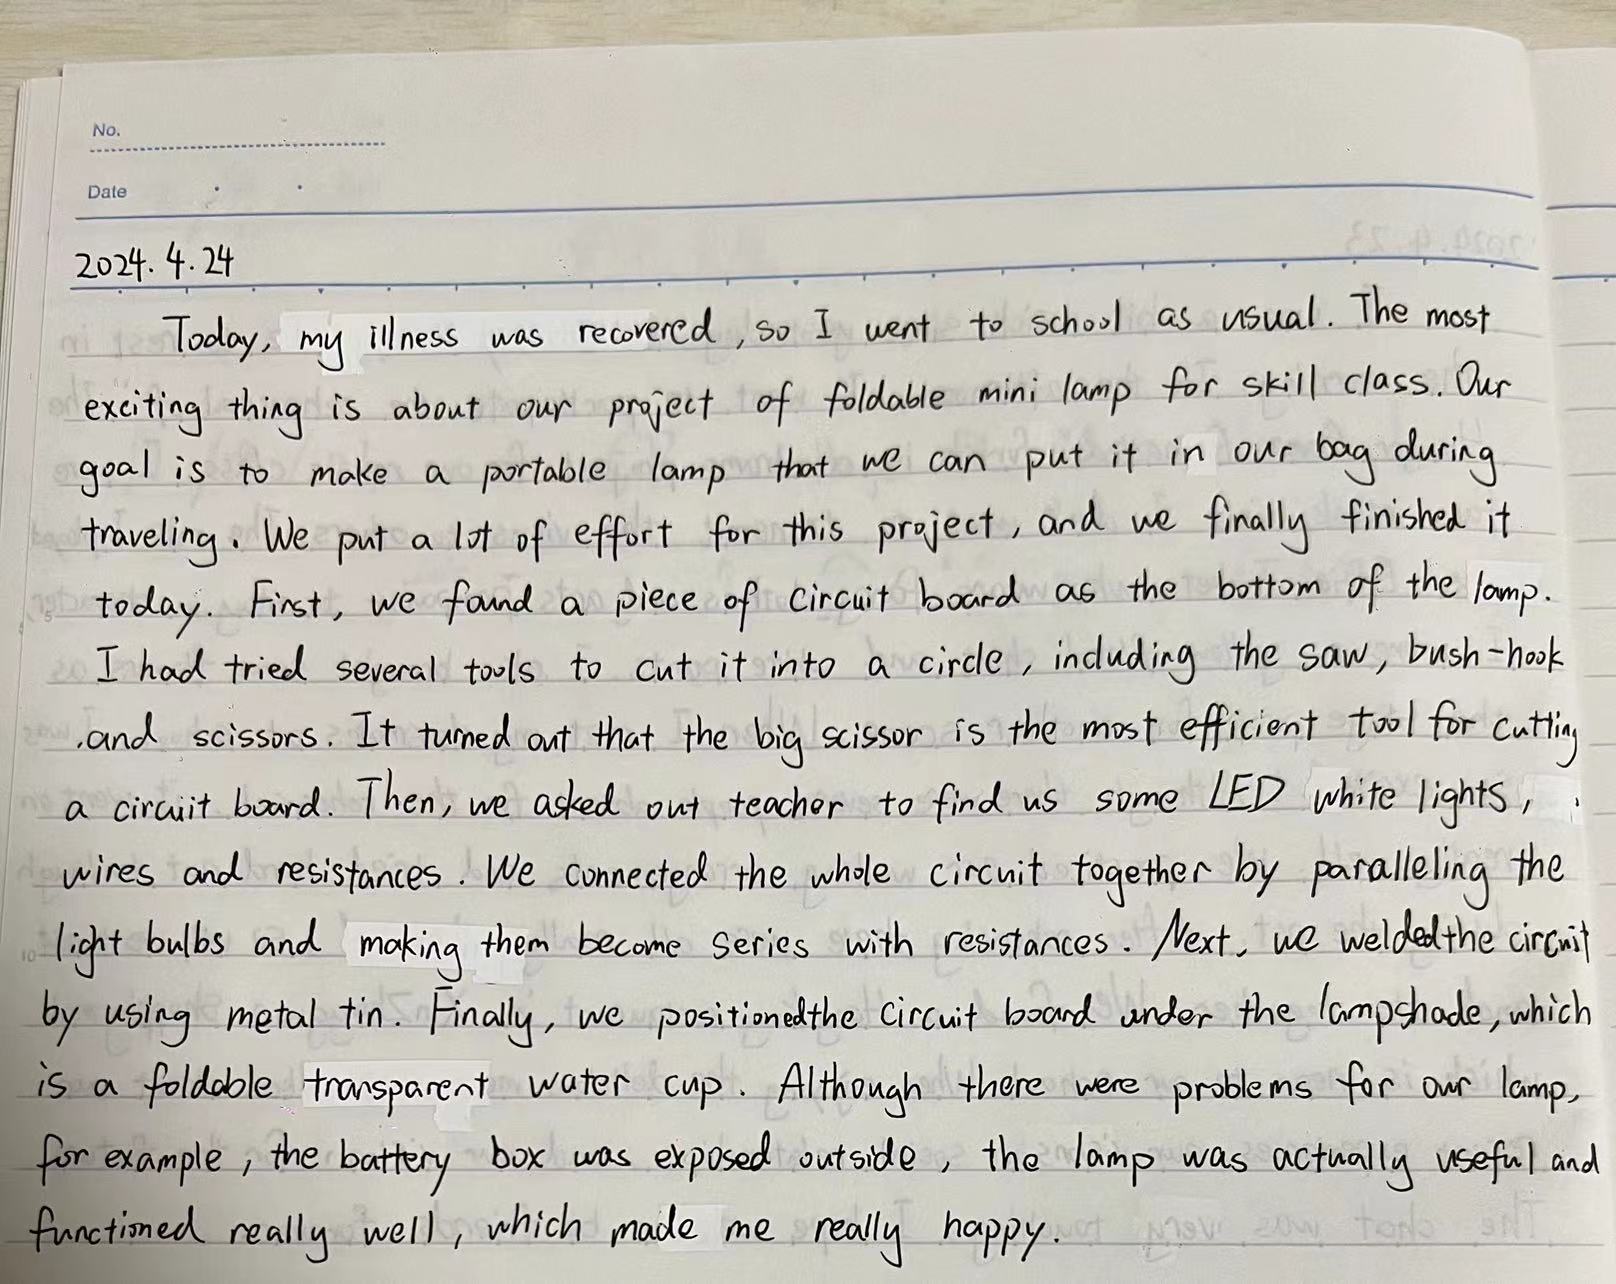 No.
Date
2024.4.24
Today, my illness was recovered, so I went to school as usual. The most
exciting thing is about our project of foldable mini lamp for skill class. Our
goal is to make a portable lamp that we can put it in our bag during
traveling. We put a lot of effort for this project, and we finally finished it
today. First, we found a piece of circuit board as the bottom of the lamp.
I had tried several tools to cut it into a circle, including the saw, bush-hook
and scissors. It turned out that the big scissor is the most efficient tool for cutting
a circuit board. Then, we asked out teacher to find us some LED white lights,
wires and resistances. We connected the whole circuit together by paralleling the
light bulbs and making them become series with resistances. Next, we welded the circuit
by using metal tin. Finally, we positioned the circuit board under the lampshade, which
is a foldable transparent water cup. Although there were problems for our lamp,
for example, the battery box was exposed outside, the lamp was actually useful and
functioned really well, which made me really happy.